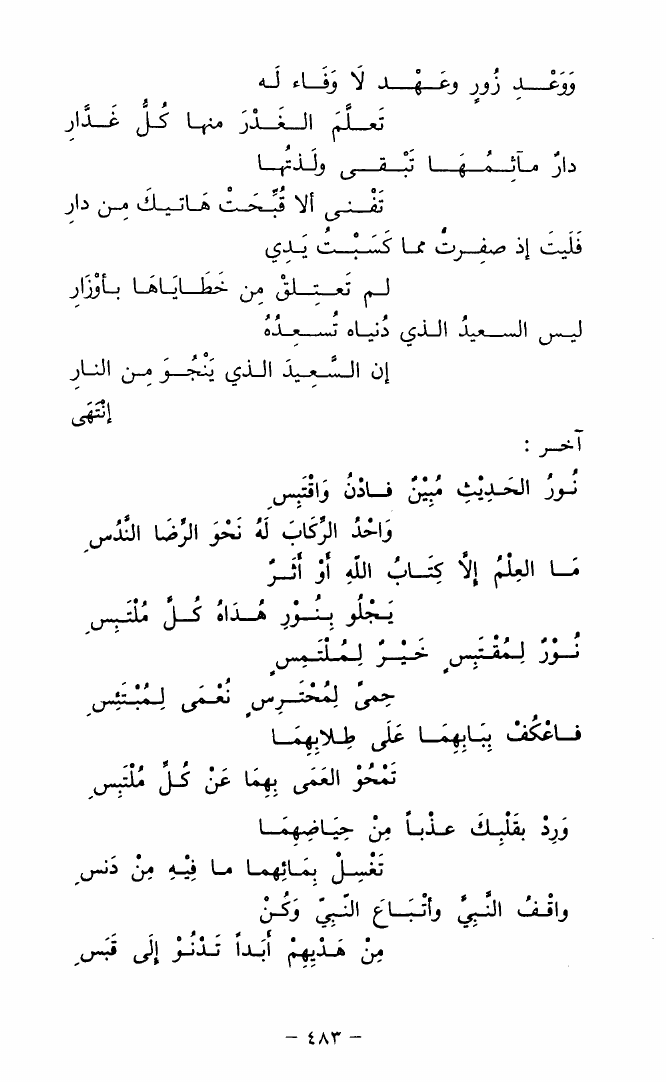 وَوَعْدِ زُورٍ وعَهْدٍ لَا وَفَاءَ لَه
تَعلَّمَ الغَدْرَ منها كُلُّ غَدَّارِ
دارٌ مآثِمُهَا تَبْقى ولَذتُها
تَفْنى ألا قُبِّحَتْ هَاتيكَ مِن دارِ
فَليتَ إذ صفِرتْ مما كَسَبْتُ يَدِي
لم تَعتلِقْ مِن خَطَايَاهَا بأوْزَارِ
ليس السعيدُ الذي دُنياه تُسعِدُهُ
إن السَّعِيدَ الذي يَنْجُو مِن النارِ
إنْتَهَى
آخر :
نُورُ الحَدِيْثِ مُبِيْنٌ فادْنُ وَاقْتَبِسِ
وَاحْدُ الرِّكَابَ لَهُ نَحْوَ الرِّضَا النَّدُسِ
مَا العِلْمُ إِلاَّ كِتَابُ اللّهِ أَوْ أَثَرٌ
يَجْلُو بِنُوْرِ هُدَاهُ كُلَّ مُلْتَبِسِ
نُوْرٌ لِمُقْتَبِسٍ خَيْرٌ لِمُلْتَمِسٍ
حِمىً لِمُحْتَرِسٍ نُعْمَى لِمُبْتَئِسِ
فاعْكُفْ بِبَابِهِمَا عَلَى طِلابِهِمَا
تَمْحُوْ العَمَى بِهِمَا عَنْ كُلِّ مُلْتَبِسِ
وَرِدْ بقَلْبِكَ عذباً مِنْ حِيَاضِهِمَا
تَغْسِلْ بِمَائِهِما ما فِيْهِ مِنْ دَنسِ
واقْفُ النَّبِيَّ وأتْبَاعَ النَّبِيّ وَكُنْ
مِنْ هَدْيِهِمْ أبَداً تَدْنُوْ إِلَى قَبَسِ
- ٤٨٣ -